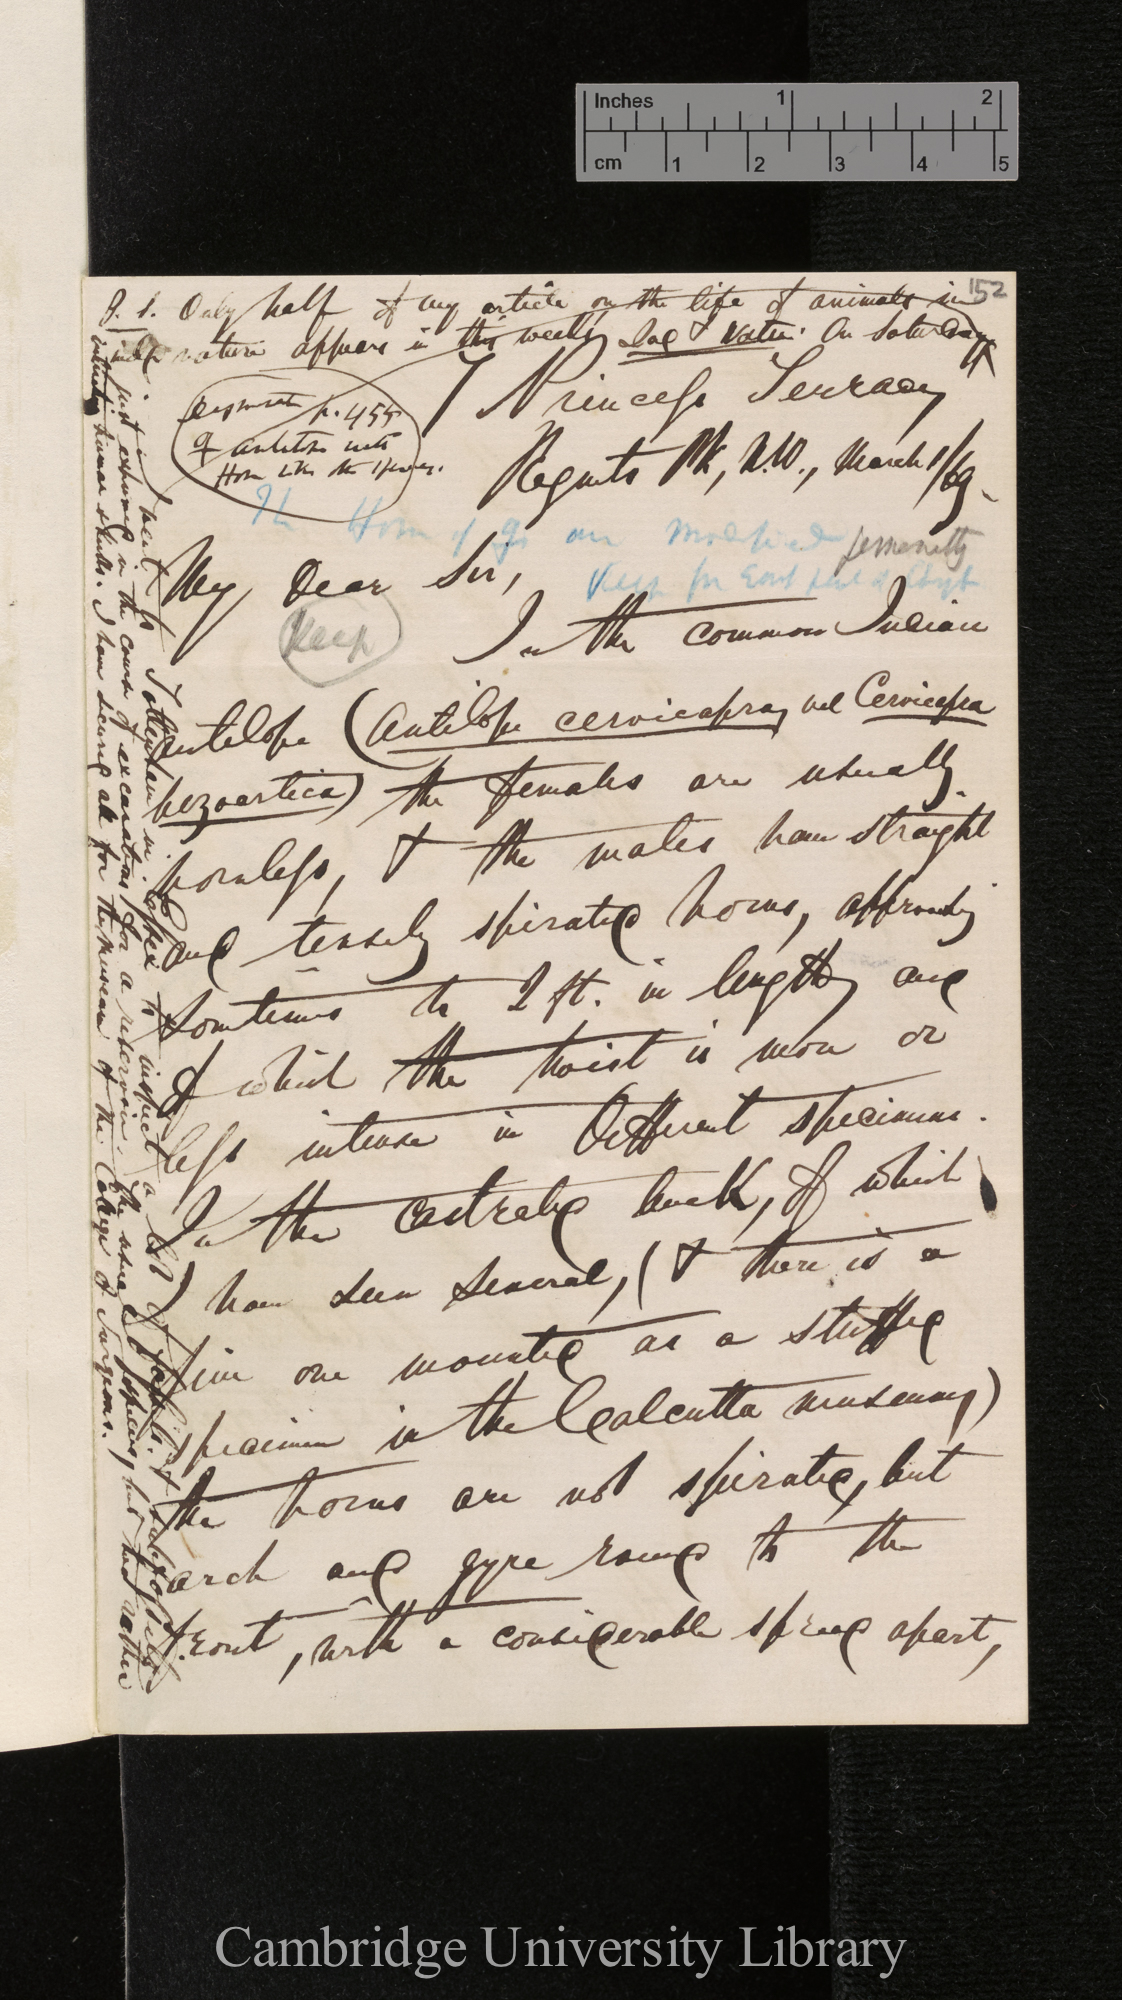 Inches 1 2
cm 1 2 3 4 5
152
P.S. Only half of my article on the life of animals in
nature appears in this week's Land & Water. On Saturday
7 Princess Terrace,
Regents Pk, N.W., March 1/69.
p. 455
of antelope with
Horn like the
The Horn of are modified
Keep for
My Dear Sir,
Keep
In the common Indian
antelope (Antilope cervicapra, vel Cervicapra
bezoartica) the females are usually
hornless, & the males have straight
and tensely spirated horns, approaching
sometimes to 2 ft. in length, and
of which the twist is more or
less intense in different specimens.
In the castrated buck, of which
I have seen several, (& there is a
fine one mounted as a stuffed
specimen in the Calcutta museum,)
the horns are not spirated, but
arch and gyre round to the
front, with a considerable spread apart,
to inspect a lot of fossils
just exhumed in the course of excavations for a reservoir.
human skulls. I have secured all for the museum of the College of Surgeons.
Cambridge University Library